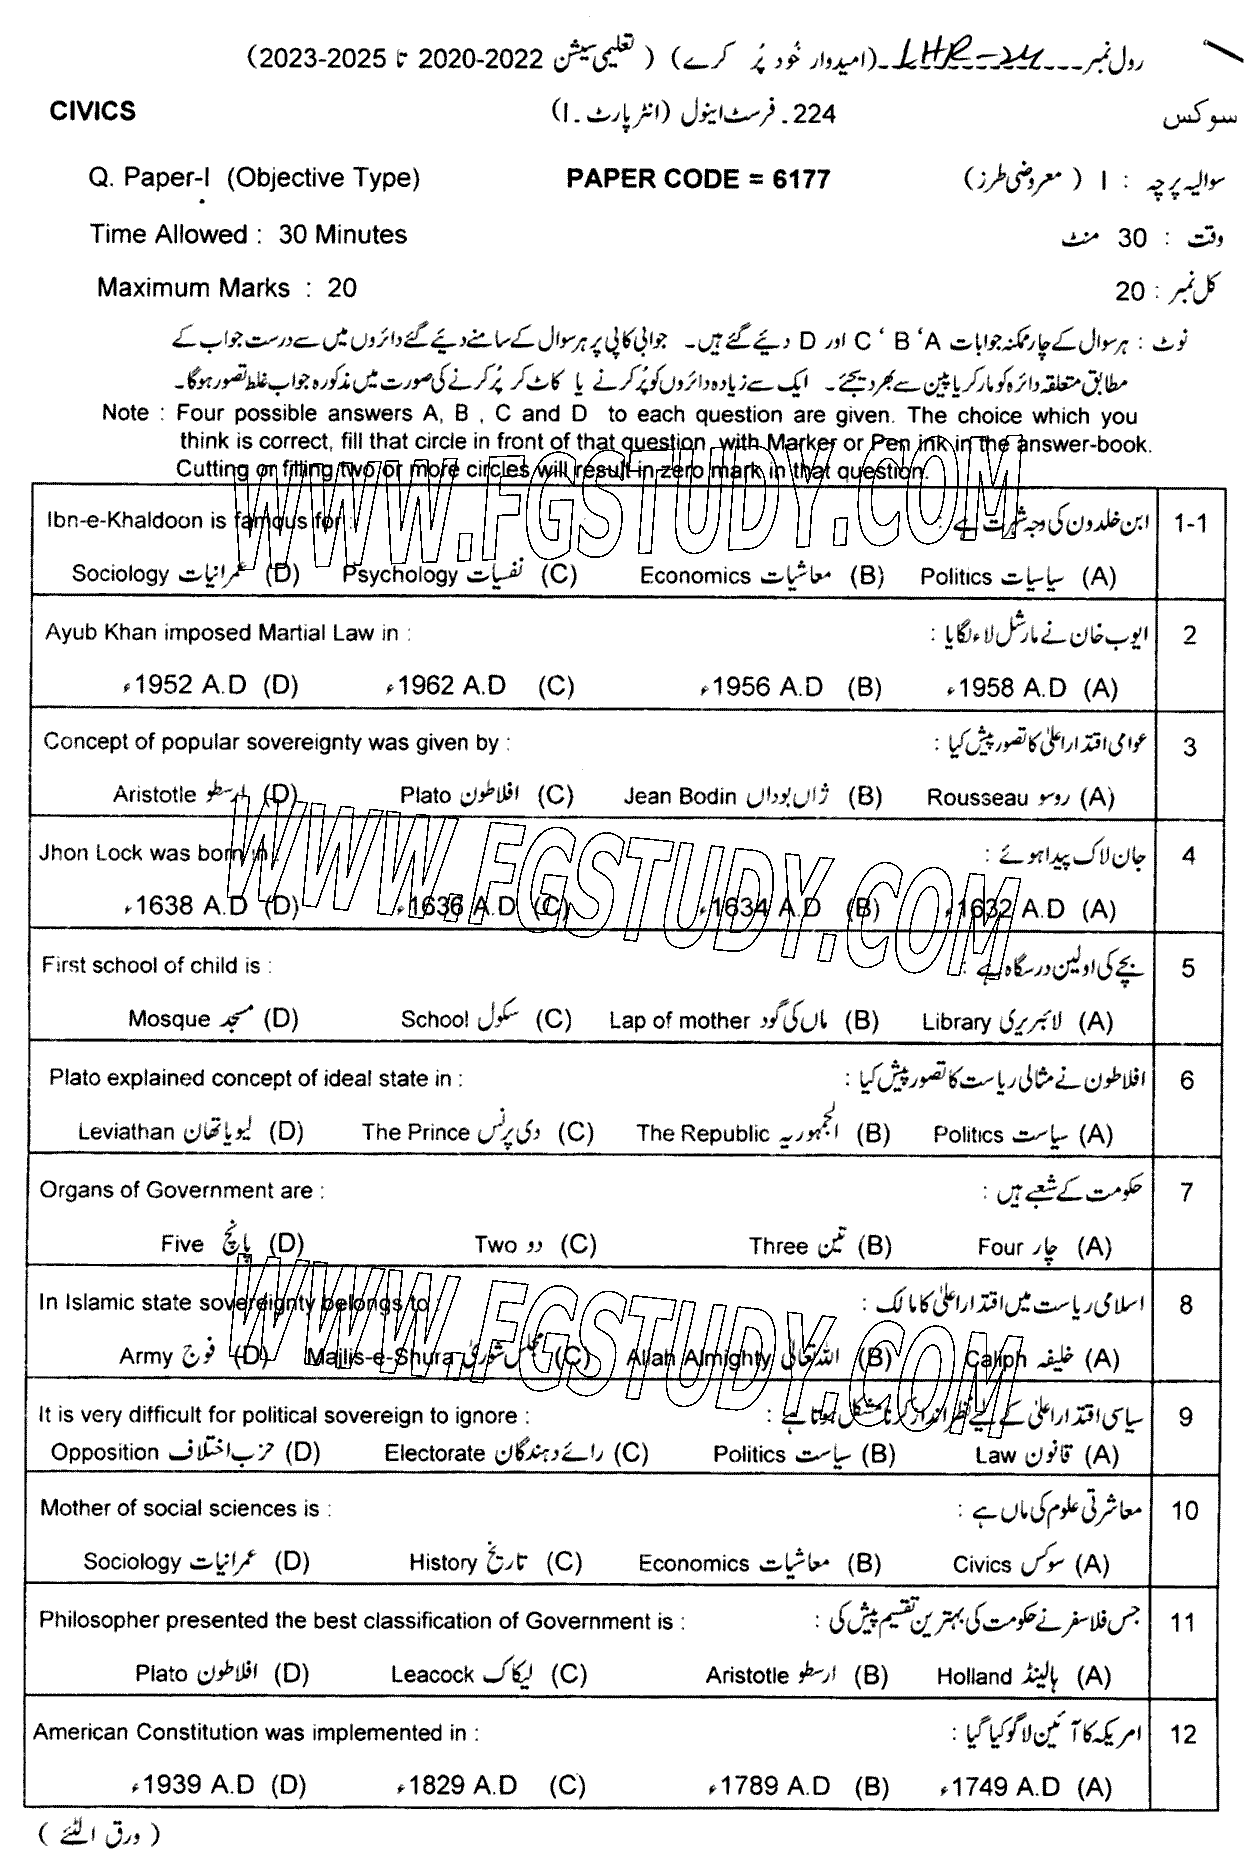 رول نمبر ـ ـ ـ LHR-24 ـ ـ ـ (امیدوار خود پُر کرے) ( تعلیمی سیشن 2022-2020 تا 2025-2023)
CIVICS 224۔ فرسٹ اینول (انٹر پارٹ۔ I) سوکس
Q. Paper-I (Objective Type) PAPER CODE = 6177 سوالیہ پرچہ : I ( معروضی طرز)
Time Allowed : 30 Minutes وقت : 30 منٹ
Maximum Marks : 20 کل نمبر : 20
نوٹ : ہر سوال کے چار ممکنہ جوابات A ‘ B ‘ C اور D دیئے گئے ہیں۔ جوابی کاپی پر ہر سوال کے سامنے دیئے گئے دائروں میں سے درست جواب کے
مطابق متعلقہ دائرہ کو مارکر یا پین سے بھر دیجئے۔ ایک سے زیادہ دائروں کو پُر کرنے یا کاٹ کر پُر کرنے کی صورت میں مذکورہ جواب غلط تصور ہوگا۔
Note : Four possible answers A, B , C and D to each question are given. The choice which you
think is correct, fill that circle in front of that question with Marker or Pen ink in the answer-book.
Cutting or filling two or more circles will result in zero mark in that question.
WWW.FGSTUDY.COM
Ibn-e-Khaldoon is famous for : ابن خلدون کی وجہ شہرت ہے : 1-1
Sociology عمرانیات (D) Psychology نفسیات (C) Economics معاشیات (B) Politics سیاسیات (A)
Ayub Khan imposed Martial Law in : ایوب خان نے مارشل لاء لگایا : 2
ء1952 A.D (D) ء1962 A.D (C) ء1956 A.D (B) ء1958 A.D (A)
Concept of popular sovereignty was given by : عوامی اقتدار اعلیٰ کا تصور پیش کیا : 3
Aristotle ارسطو (D) Plato افلاطون (C) Jean Bodin ژاں بوداں (B) Rousseau روسو (A)
WWW.FGSTUDY.COM
Jhon Lock was born in : جان لاک پیدا ہوئے : 4
ء1638 A.D (D) ء1636 A.D (C) ء1634 A.D (B) ء1632 A.D (A)
First school of child is : بچے کی اولین درسگاہ ہے : 5
Mosque مسجد (D) School سکول (C) Lap of mother ماں کی گود (B) Library لائبریری (A)
Plato explained concept of ideal state in : افلاطون نے مثالی ریاست کا تصور پیش کیا : 6
Leviathan لیویاتھان (D) The Prince دی پرنس (C) The Republic الجمہوریہ (B) Politics سیاست (A)
Organs of Government are : حکومت کے شعبے ہیں : 7
Five پانچ (D) Two دو (C) Three تین (B) Four چار (A)
WWW.FGSTUDY.COM
In Islamic state sovereignty belongs to : اسلامی ریاست میں اقتدار اعلیٰ کا مالک : 8
Army فوج (D) Majlis-e-Shura مجلس شوریٰ (C) Allah Almighty اللہ تعالیٰ (B) Caliph خلیفہ (A)
It is very difficult for political sovereign to ignore : سیاسی اقتدار اعلیٰ کے لئے نظر انداز کرنا مشکل ہوتا ہے : 9
Opposition حزب اختلاف (D) Electorate رائے دہندگان (C) Politics سیاست (B) Law قانون (A)
Mother of social sciences is : معاشرتی علوم کی ماں ہے : 10
Sociology عمرانیات (D) History تاریخ (C) Economics معاشیات (B) Civics سوکس (A)
Philosopher presented the best classification of Government is : جس فلاسفر نے حکومت کی بہترین تقسیم پیش کی : 11
Plato افلاطون (D) Leacock لیکاک (C) Aristotle ارسطو (B) Holland ہالینڈ (A)
American Constitution was implemented in : امریکہ کا آئین لاگو کیا گیا : 12
ء1939 A.D (D) ء1829 A.D (C) ء1789 A.D (B) ء1749 A.D (A)
( ورق الٹئے )